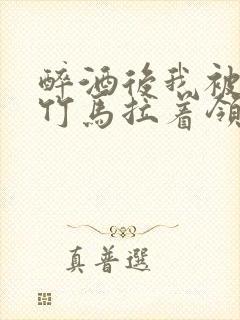 醉酒後我被
竹馬拉著領
真普選